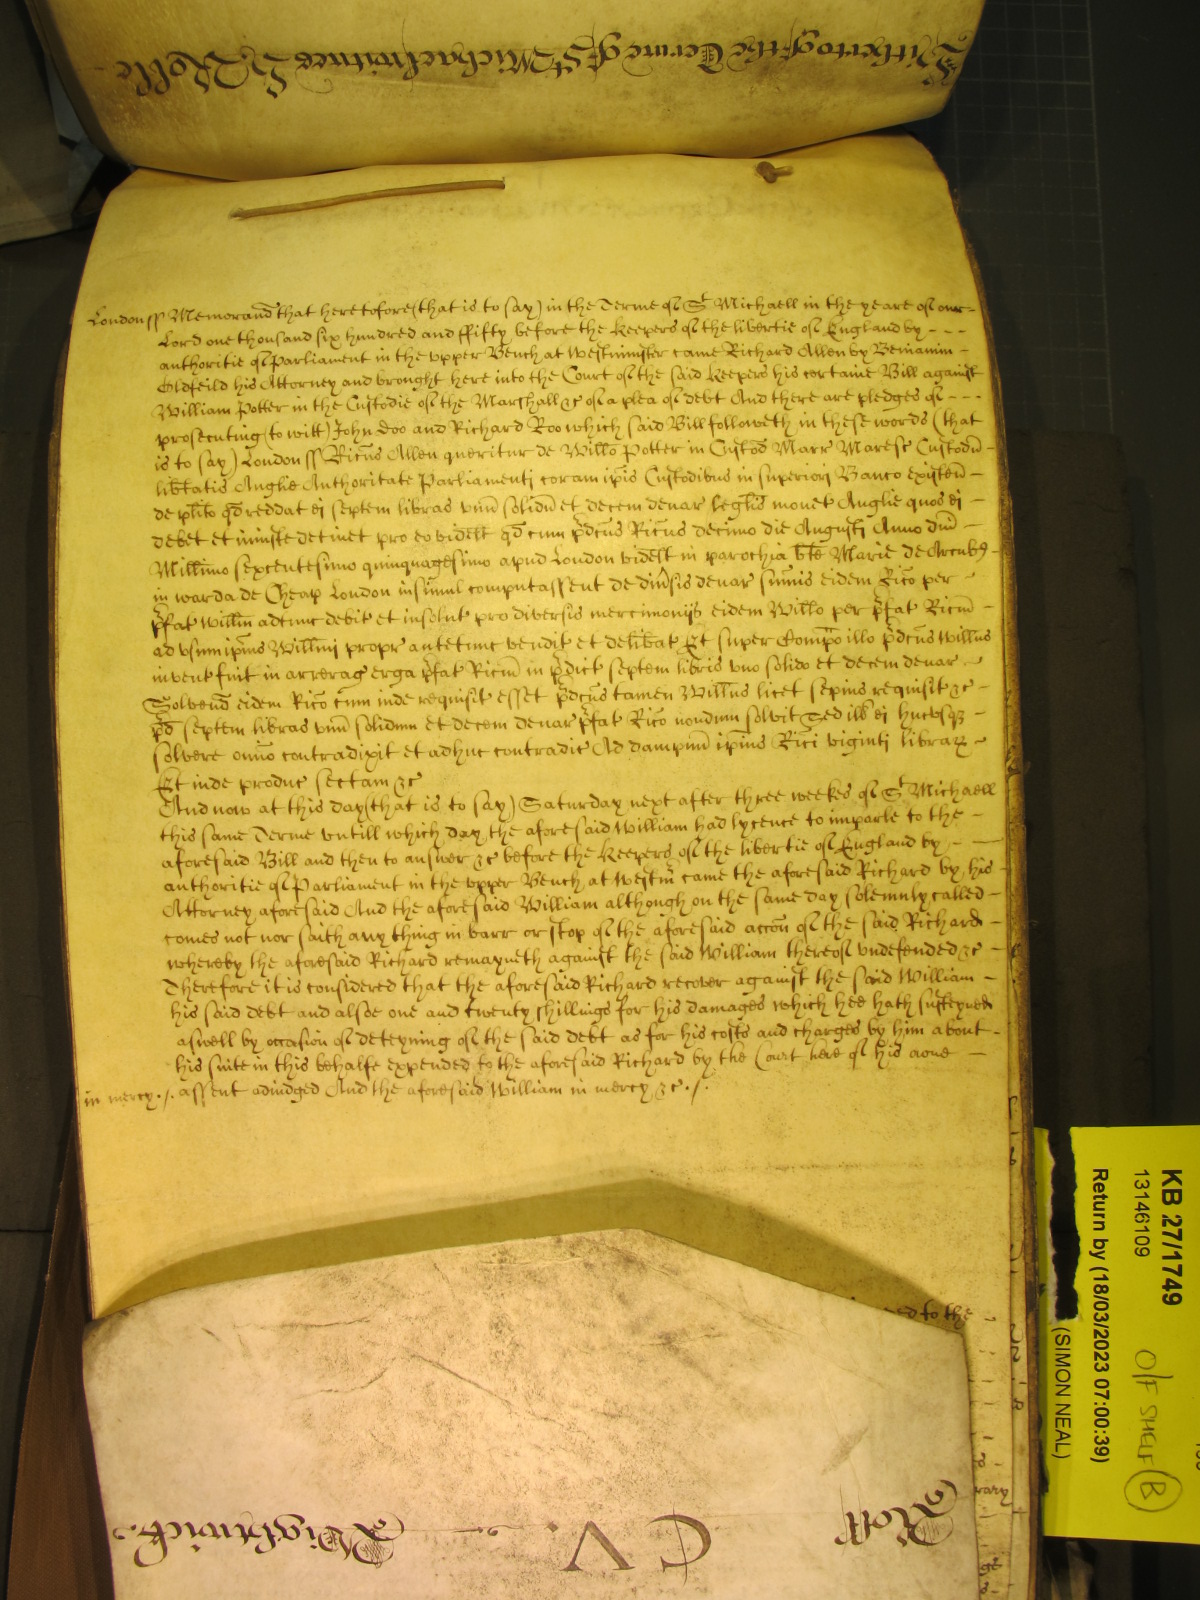 Witherto of the Terme of St Michael witnes H Rolle
London ss Memorand that heretofore (that is to say) in the Terme of St Michaell in the yeare of our
Lord one thousand six hundred and ffifty before the Keepers of the libertie of England by - - -
authoritie of Parliament in the vpper Bench at Westminster came Richard Allen by Beniamin -
Oldfeild his Attorney and brought here into the Court of the said Keepers his certaine Bill against
William Potter in the Custodie of the Marshall &c of a plea of debt And there are pledges of - - -
prosecuting (to witt) John Doo and Richard Roo which said Bill followeth in these words (that
is to say) London ss Ricus Allen queritur de Willo Potter in Custod Marr Maresc Custodu -
libtatis Anglie Authoritate Parliamenti coram ipis Custodibus in superiori Banco existen -
de plito qd reddat ei septem libras unu solidu et decem denar leglis monet Anglie quos ei -
debet et iniuste detinet pro eo videlt qd cum pdcus Ricus decimo die Augusti Anno Dni -
Millimo sexcentesimo quinquagesimo apud London videlt in parochia bte Marie de Arcubz -
in warda de Cheap London insimul computassent de divsis denar sumis eidem Rico per -
pfat Willm adtunc debit et insolut pro diversis mercimonijs eidem Willo per pfat Ricm -
ad usum ipius Willmi propr antetunc vendit et delibat Et super Compo illo pdcus Willus
invent fuit in arrerag erga pfat Ricm in pdict septem libris uno solido et decem denar -
Solvend eidem Rico cum inde requisit esset pdcus tamen Willus licet sepius requisit &c -
pd septem libras unu solidum et decem denar pfat Rico nondum solvit Sed ill ei hucusqz -
solvere omno contradixit et adhuc contradic Ad dampnu ipius Rici viginti librarz -
Et inde produc sectam &c
And now at this day (that is to say) Saturday next after three weekes of St Michaell
this same Terme vntill which day the aforesaid William had lycence to imparle to the -
aforesaid Bill and then to answer &c before the Keepers of the libertie of England by -
authoritie of Parliament in the vpper Bench at Westm came the aforesaid Richard by his
Attorney aforesaid And the aforesaid William although on the same day solemnly called -
comes not nor saith any thing in barr or stop of the aforesaid accon of the said Richard -
whereby the aforesaid Richard remayneth against the said William thereof vndefended &c -
Therefore it is considered that the aforesaid Richard recover against the said William -
his said debt and alsoe one and twenty shillings for his damages which hee hath susteyned
aswell by occasion of deteyning of the said debt as for his costs and charges by him about -
his suite in this behalfe expended to the aforesaid Richard by the Court here of his aone -
in mercy ./. assent adiudged And the aforesaid William in mercy &c ./.
ed to the
Roll CV. Wightwick
KB 27/1749
13146109
Return by (18/03/2023 07:00:39)
(SIMON NEAL)
O/F SHELF B